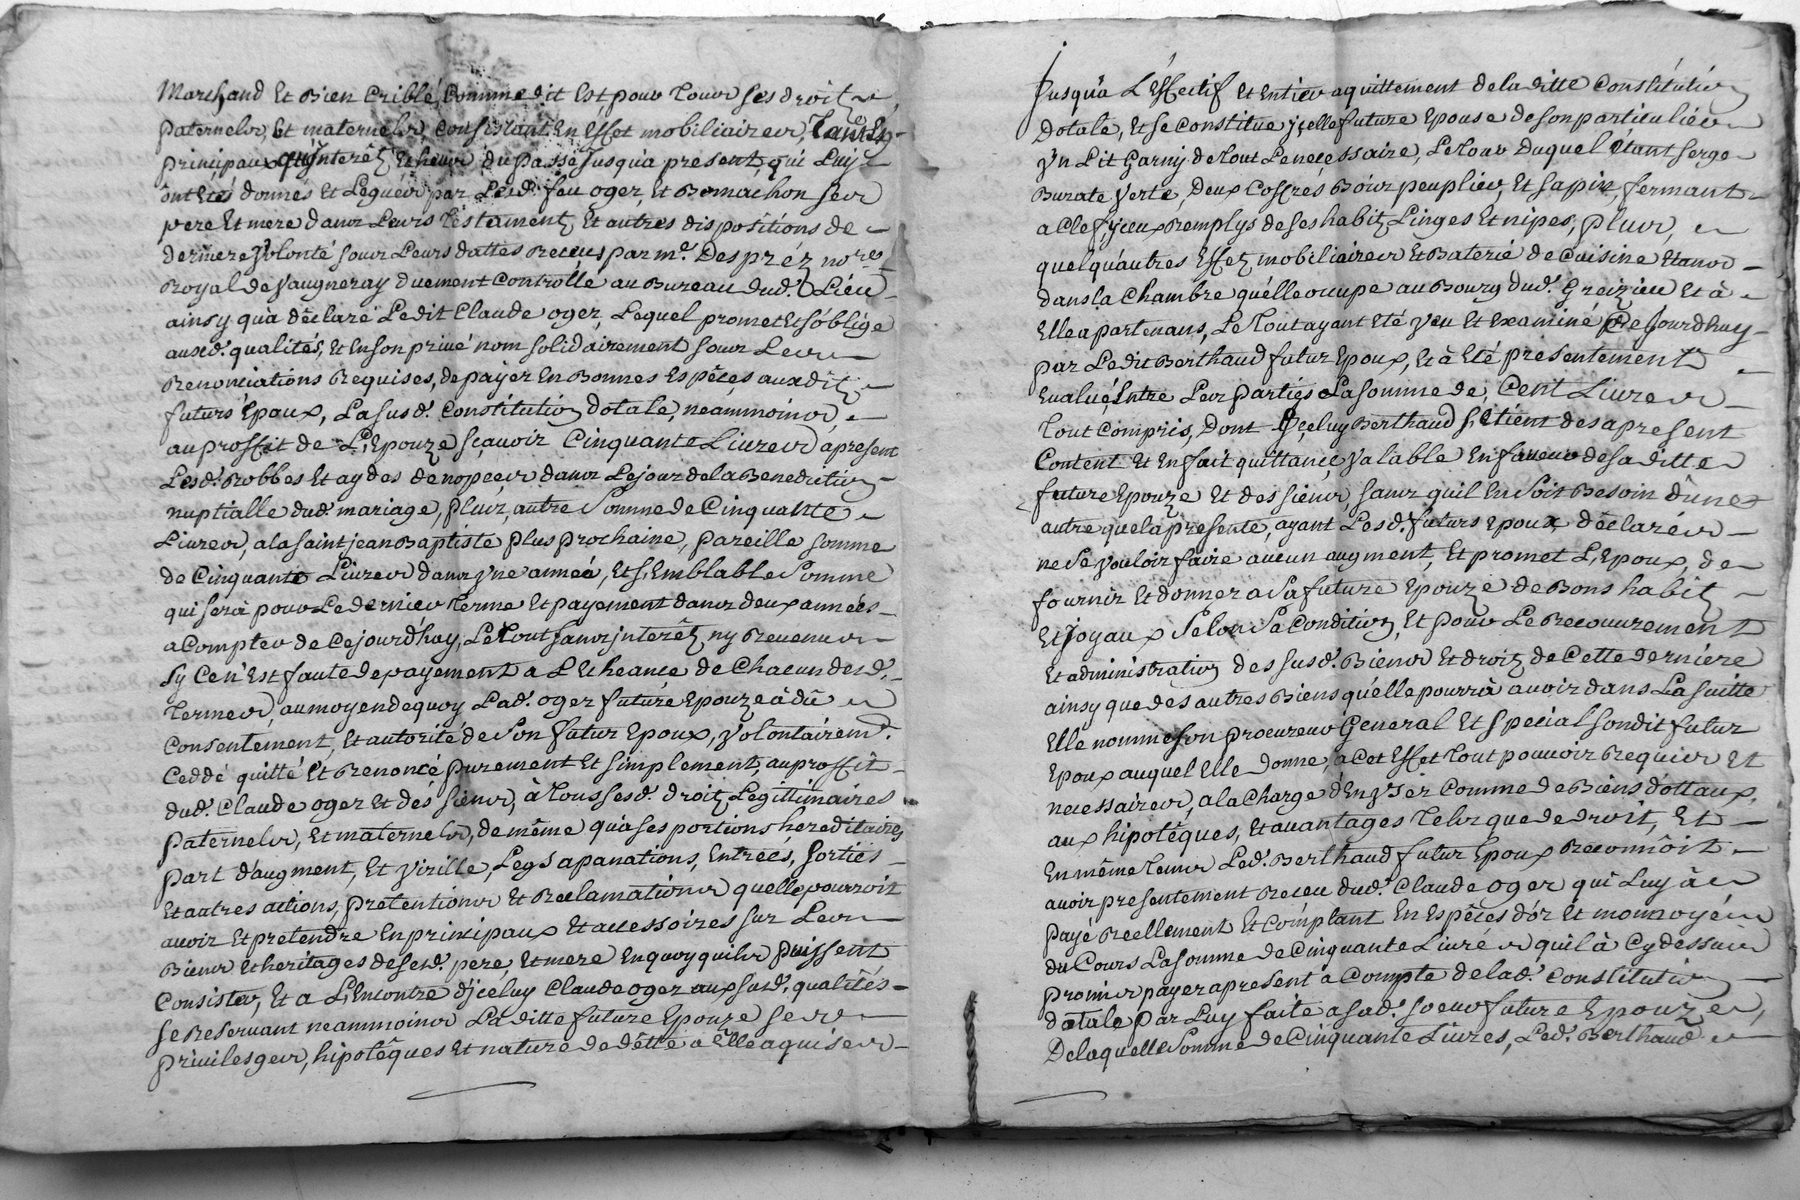 Marchand Et Bien Criblé, Comme dit Est pour Tous ses droits
paternels, Et maternels, Consistant En Effet mobiliaires, Tant En
principaux, qu'Interêts Echeus du passé Jusqu'a present, qui Luy
ônt Etés donnés et Legués par Lesd. feu oger, Et Bonnachon ses
pere Et mere dans Leurs Testament, Et autres dispositions de
derniere Volonté sous Leurs dattes Reçeus par me. Despréz nores
Royal de Vaugneray duement Controllé au Bureau dud. Lieu
ainsy qu'a dêclaré Ledit Claude oger, Lequel promet Et s'oblige
ausd. qualités, Et En son privé nom solidairement sous Les
Renonciations Requises, de payer En Bonnes Espêces auxdits
futurs Epoux, La susd. Constitution dotale, neammoins,
au proffit de L'Epouze sçavoir Cinquante Livres apresent
Lesd. Robbes Et aydes de nopces dans Le jour de la Benediction
nuptialle dud. mariage, plus, autre Somme de Cinquante
Livres, a la saint jean Baptiste plus prochaine, pareille somme
de Cinquante Livres dans Vne année, Et s'Emblable Somme
qui serà pour Le dernier Terme Et payement dans deux années
a Compter de Cejourd'huy, Le Tout sans jnterêts ny Revenus
sy Ce n'Est faute de payement a L'Echeance de Chacun desd.
Termes, au moyen de quoy Lad. oger future Epouze à du
Consentement, Et autorité de Son futur Epoux, Volontairemt.
Ceddé quitté Et Renoncé purement Et simplement, au proffit
dud. Claude oger Et des siens, à Tous sesd. droits Legittimaires
paternels, Et maternels, de même qu'a ses portions hereditaires
part d'augment, Et Virille, Legs apanations, Entrées, sorties
Et autres actions, prétentions Et Reclamations quelle pourroit
avoir Et pretendre En principaux Et accessoires sur Les
Biens Et heritages de sesd. pere, Et mere En quoy quils puissent
Consister, Et a L'Encontre d'jceluy Claude oger aux susd. qualités
se Reservant neammoins Laditte future Epouze ses
privileges, hipotêques Et nature de dêtte a Elle aquises
Jusqu'a L'Effectif Et Entier aquittement de laditte Constitution
Dotale, Et se Constitue jçelle future Epouse de son particulier
Vn Lit Garny de Tout Le neçessaire, Le Tour Duquel Etant serge
Burate Verte, Deux Coffres Bois peuplier, Et sapin, fermant
a Clef, jceux Remplys de ses habits Linges Et nipes, plus,
quelqu'autres Effets mobiliaires Et Baterié de Cuisine Etans
dans la Chambre qu'élle ocupe au Bourg dud. Greizieu Et à
Elle apartenans, Le Tout ayant Eté Veu Et Examiné Cejourdhuy
par Ledit Berthaud futur Epoux, Et à Eté presentement
Evalué Entre Les parties La somme de, Cent Livres
Tout Compris, Dont Jçeluy Berthaud s'Etient des apresent
Content Et En fait quittance Valable En faveur de saditte
future Epouze Et des siens, sans quil En Soit Besoin d'une
autre que la presente, ayant Lesd. futurs Epoux dêclarés
ne Se Vouloir faire aucun augment, Et promet L'Epoux, de
fournir Et donner a Sa future Epouze de Bons habits
Et Joyaux Selon Sa Condition, Et pour Le Recouvrement
Et administration des susd. Biens Et droits de Cette derniere
ainsy que des autres Biens qu'elle pourrià avoir dans La suitte
Elle nomme son procureur General Et special sondit futur
Epoux auquel Elle Donne, a Cet Effet Tout pouvoir Requier Et
necessaires, a la Charge d'En Vser Comme de Biens dottaux,
aux hipotêques, Et avantages Tels que de droit, Et
En même Tems Led. Berthaud futur Epoux Reconnôit
avoir presentement Receu dud. Claude oger qui Luy à
payé Reellement Et Comptant En Espêces d'or Et monnoyé
du Cours La somme de Cinquante Livres quil à Cy dessus
promis payer apresent a Compte de lad. Constitution
dotale par Luy faite a sad. soeur future Epouze,
De laquelle Somme de Cinquante Livres, Led. Berthaud